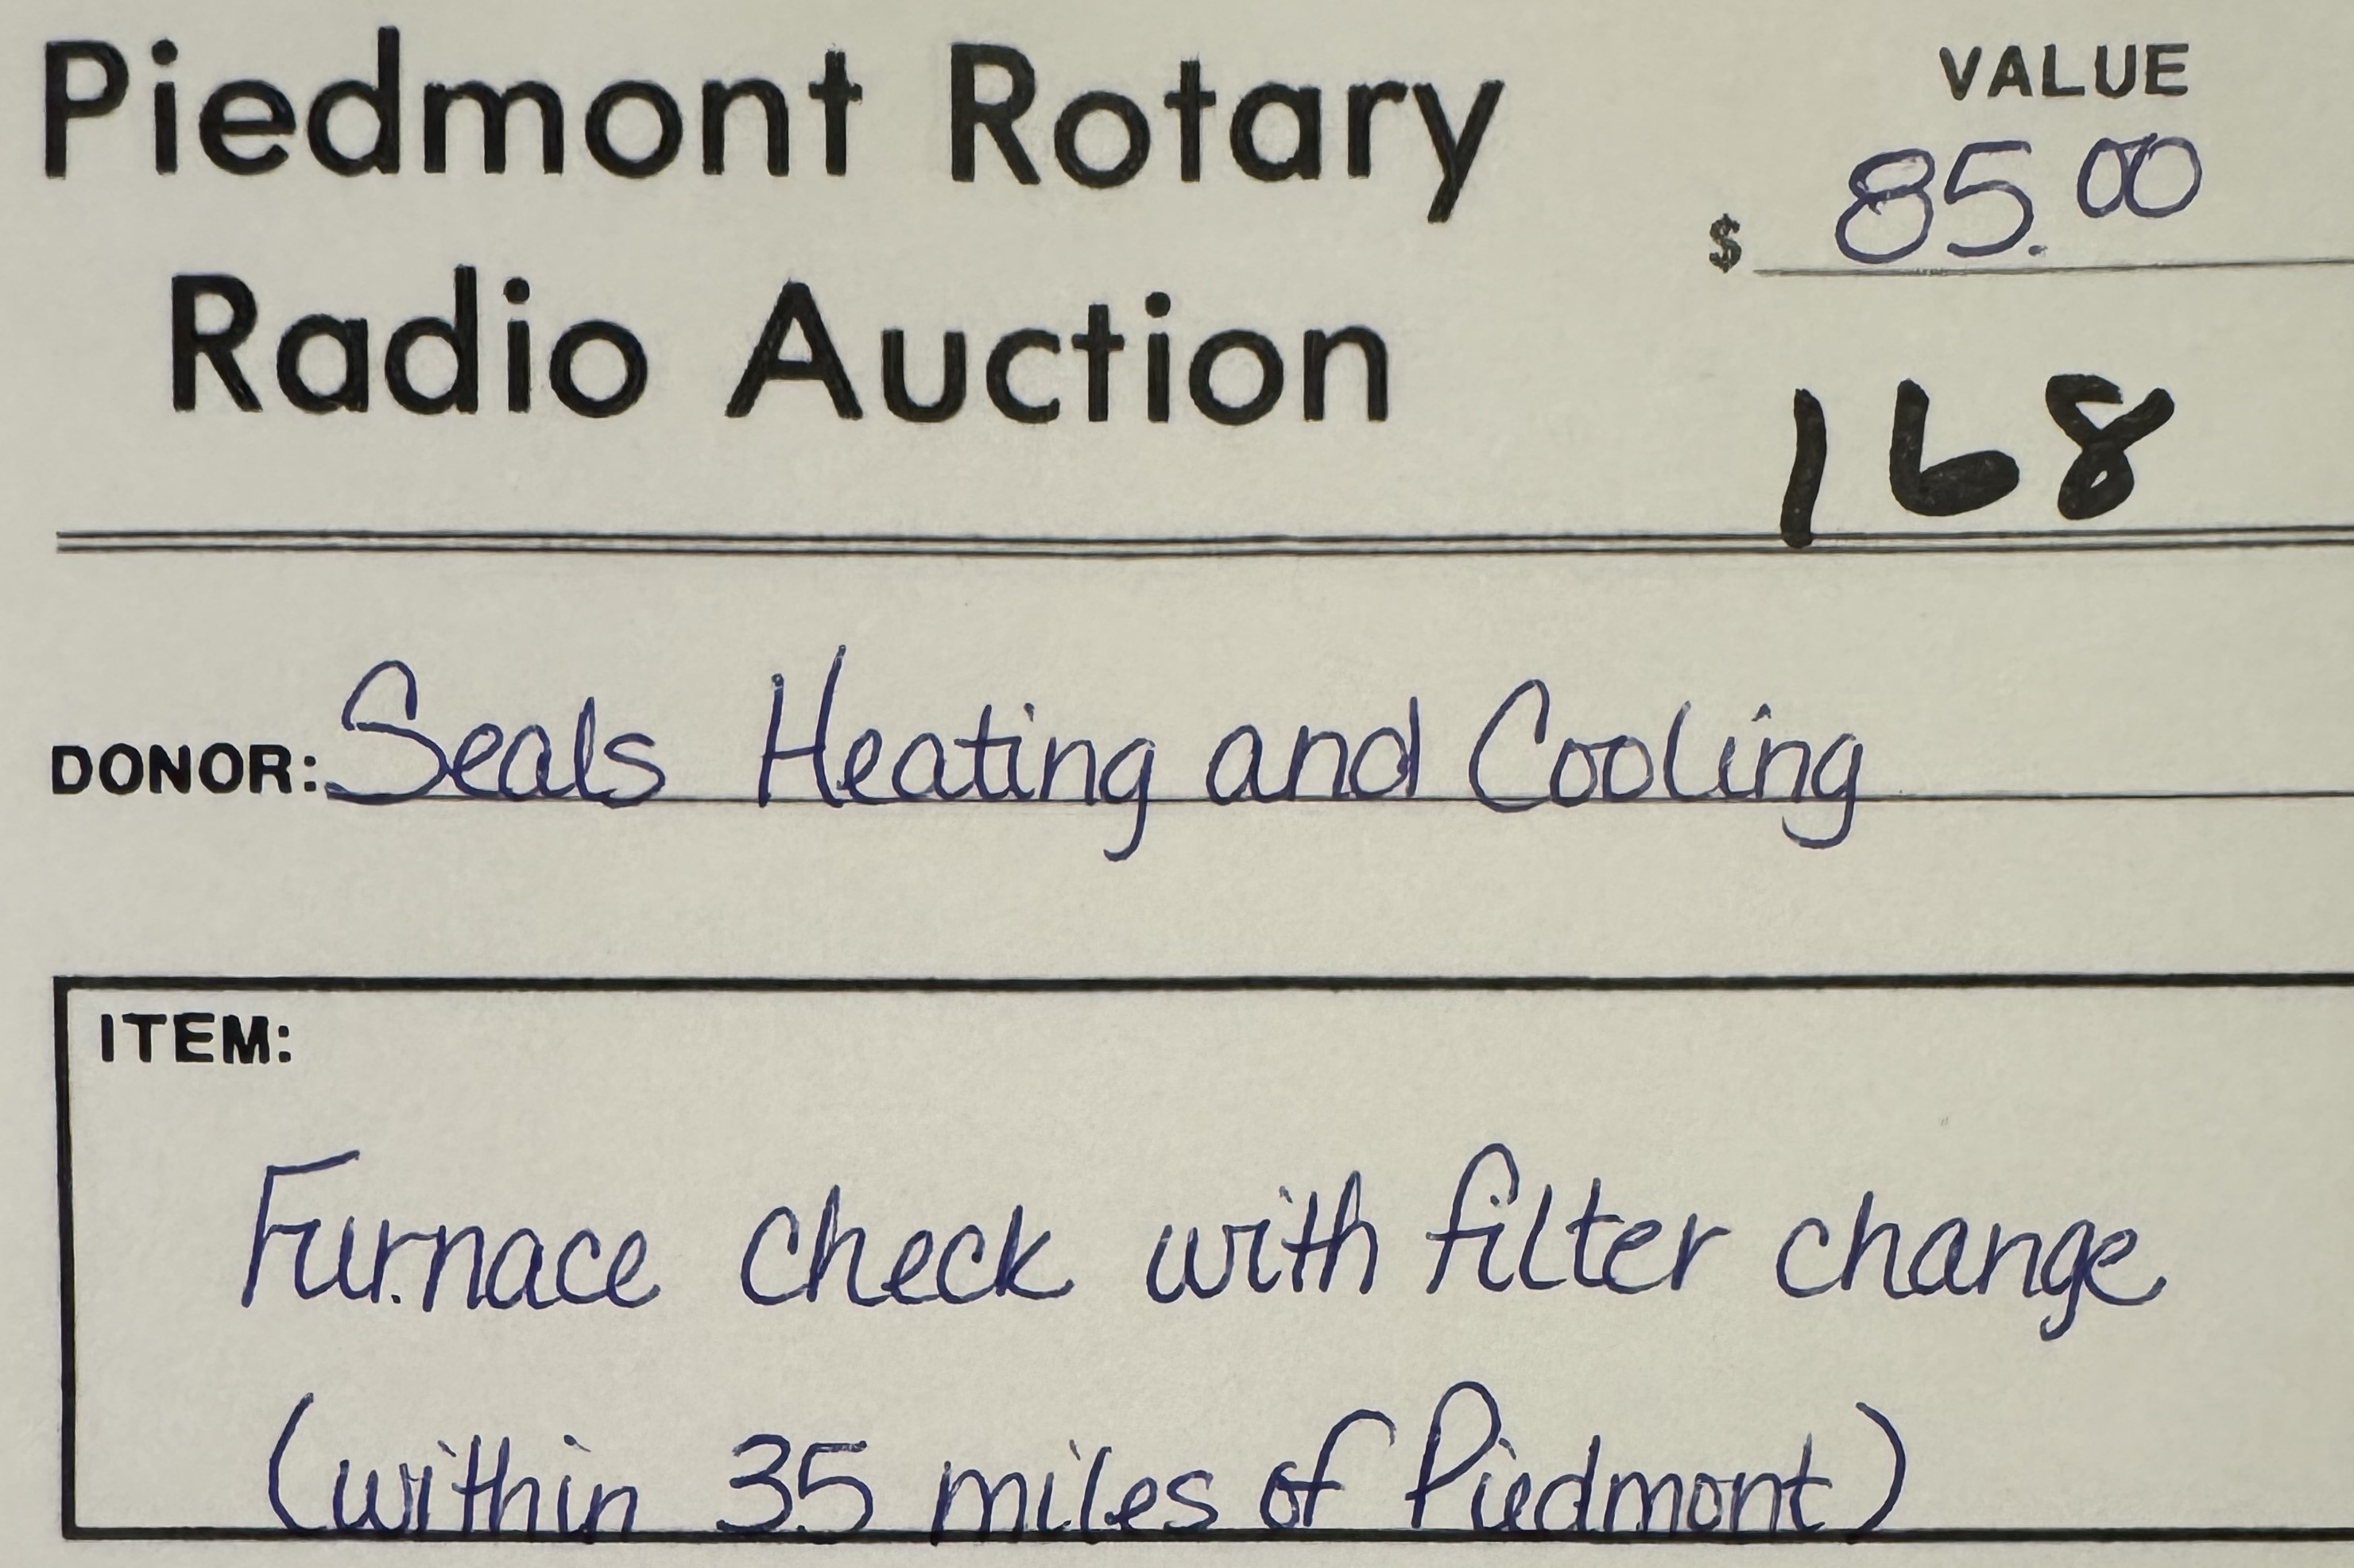 Piedmont Rotary
Radio Auction
VALUE
$ 85.00
168
DONOR: Seals Heating and Cooling
ITEM:
Furnace check with filter change
(within 35 miles of Piedmont)